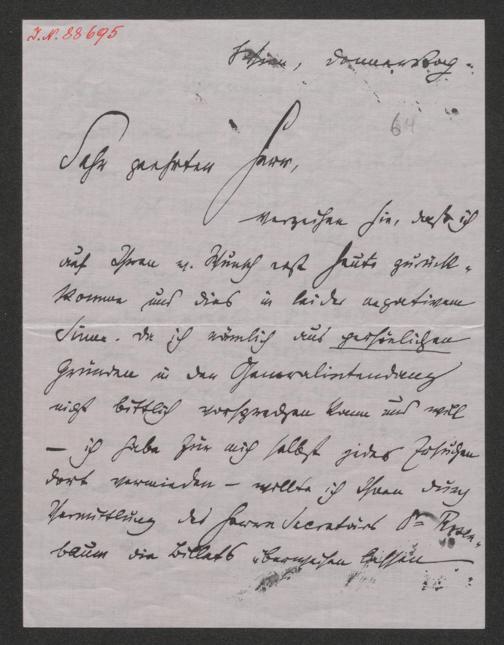 I.N. 88695
Wien, Donnerstag.
64
Sehr geehrter Herr,
verzeihen Sie, dass ich
auf Ihren w. Wunsch erst heute zurück-
komme und dies in leider negativem
Sinne. Da ich nämlich aus persönlichen
Gründen in der Generalintendanz
nicht bittlich vorsprechen kann und will
– ich habe für mich selbst jedes Ansuchen
dort vermieden – wollte ich Ihnen durch
Vermittlung des Herrn Secretärs Dr Rosen-
baum die Billets überweisen lassen